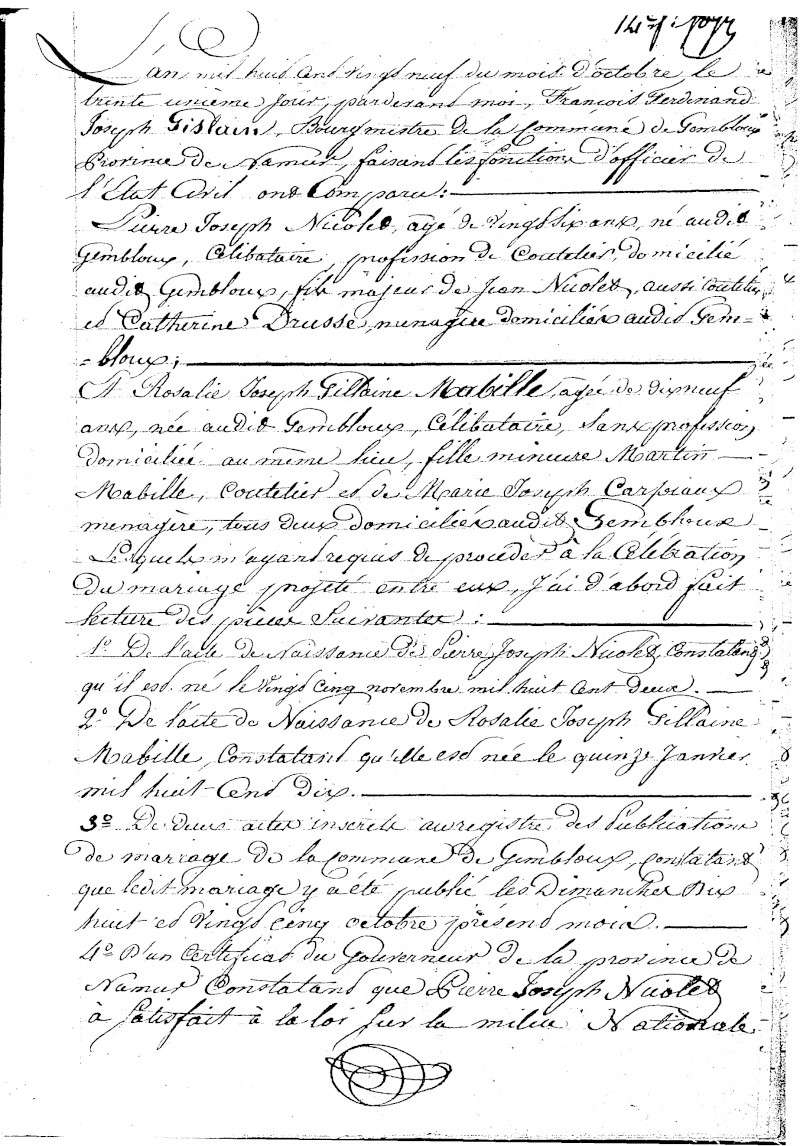 L'an mil huit cent vingt neuf du mois d'octobre, le
trente unième jour, pardevant moi, François Ferdinand
Joseph Gislain, Bourgmestre de la Commune de Gembloux
Province de Namur, faisant les fonctions d'officier de
l'Etat Civil ont Comparu :
Pierre Joseph Nicolet, agé de vingt six ans, né audit
Gembloux, Célibataire, profession de Coutelier, domicilié
audit Gembloux, fils majeur de Jean Nicolet, aussi Coutelier,
et Catherine Drusse, menagère domiciliés audit Gem-
-bloux ;
Et Rosalie Joseph Gillaine Mabille, agée de dix neuf
ans, née audit Gembloux, Célibataire, sans profession,
domiciliée au même lieu, fille mineure Martin
Mabille, Coutelier et de Marie Joseph Carpiaux
menagère, tous deux domiciliés audit Gembloux
Lesquels m'ayant requis de procéder à la Célébration
du mariage projeté entre eux, J'ai d'abord fait
lecture des pièces suivantes :
1º De l'acte de Naissance de Pierre Joseph Nicolet, Constatant
qu'il est né le vingt cinq novembre mil huit cent deux.
2º De l'acte de Naissance de Rosalie Joseph Gillaine
Mabille, Constatant qu'elle est née le quinze Janvier
mil huit Cent Dix.
3º De deux actes inscrits au registre des Publications
de mariage de la commune de Gembloux, constatant
que ledit mariage y a été publié les Dimanches Dix
huit et vingt cinq octobre présent mois.
4º D'un Certificat du Gouverneur de la province de
Namur Constatant que Pierre Joseph Nicolet
à satisfait à la loi sur la milice Nationale